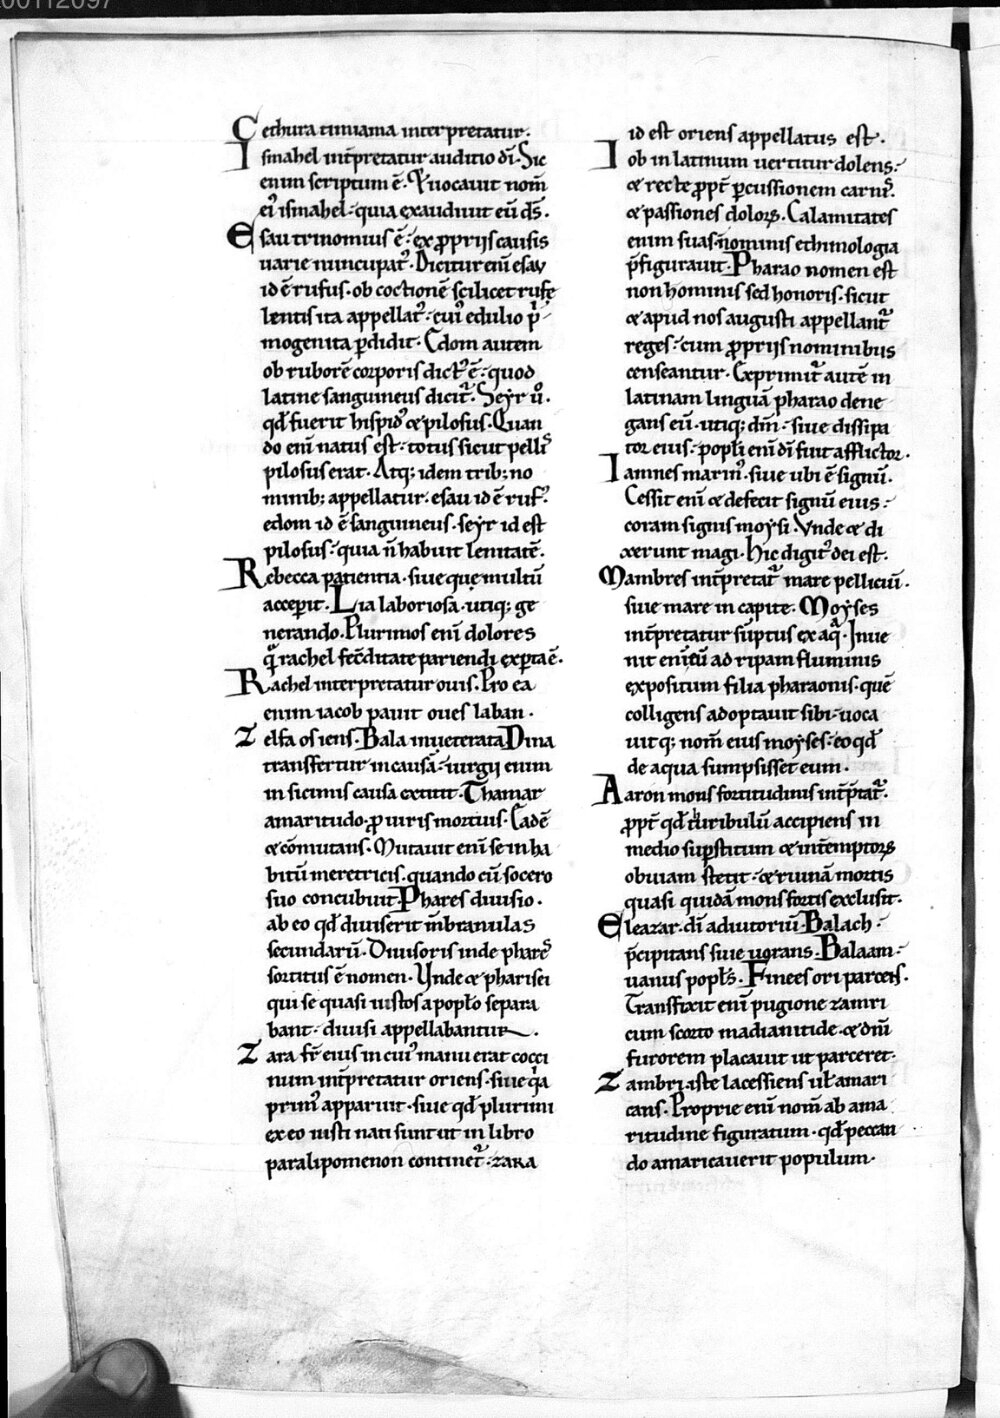 00112097
Cethura timiama interpretatur.
Ismahel int̄pretatur auditio dī. Sic
enim scriptum ē. Et uocauit nom̄
ei᾿ ismahel. quia exaudiuit eū ds̄.
Esau trinomius ē. ex ꝓprijs causis
uarie nuncupat᾿. Dicitur eni esau
id ē rufus. ob coctionē scilicet rufe
lentis ita appellat᾿. cui᾿ edulio p̄
mogenita ꝑdidit. Edom autem
ob ruborē corporis dict᾿ ē. quod
latine sanguineus dicit᾿. Seyr u᾿o.
qd̄ fuerit hispid᾿ & pilosus. Quan
do enī natus est. totus sicut pellis
pilosus erat. Atq; idem trib; no
minib; appellatur. esau id ē ruf᾿.
edom id ē sanguineus. seyr id est
pilosus. quia n̄ habuit lenitatē.
Rebecca patientia. siue que multū
acceꝑit. Lia laboriosa. utiq; ge
nerando. Plurimos enī dolores
q̄ rachel fec̄ditate pariendi exꝑta ē.
Rachel interpretatur ouis. Pro ea
enim iacob pauit oues laban.
Zelfa os iens. Bala inueterata Dina
transfertur in causā. iurgii enim
in sicimis causa extitit. Thamar
amaritudo. ꝓ uiris mortuis. Eadē
& cōmutans. Mutauit enī se in ha
bitū meretricis. quando cū socero
suo concubuit. Phares diuisio.
ab eo qd̄ diuiserit m̄branulas
secundarū. Diuisoris inde phares
sortitus ē nomen. Vnde & pharisei
qui se quasi iustos a poplo separa
bant. diuisi appellabantur.
Zara fr̄ eius in cui᾿ manu erat cocci
num int̄pretatur oriens. siue qia
prim᾿ apparuit. siue qd̄ plurimi
ex eo iusti nati sunt ut in libro
paralipomenon continet᾿. zara
id est oriens appellatus est.
Iob in latinum uertitur dolens.
& recte ꝓpt̄ ꝑcussionem carnis.
& passiones doloꝝ. Calamitates
enim suas nominis ethimologia
p̄figurauit. Pharao nomen est
non hominis sed honoris. sicut
& apud nos augusti appellant᾿
reges. cum ꝓprijs nominibus
censeantur. Exprimit᾿ autē in
latinam linguā pharao dene
gans eū. utiq; dm̄. siue dissipa
tor eius. popli enī dī fuit afflictor.
Iamnes marin᾿. siue ubi ē signū.
Cessit enī & defecit signū eius.
coram signis moysi. Vnde & di
xerunt magi. Hic digit᾿ dei est.
Mambres int̄pretat᾿ mare pelliciū.
siue mare in capite. Moyses
int̄pretatur sūptus ex aqa. Inue
nit enī eū ad ripam fluminis
expositum filia pharaonis. quē
colligens adoptauit sibi. uoca
uitq; nom̄ eius moyses. eo qd̄
de aqua sumpsisset eum.
Aaron mons fortitudinis int̄ptat᾿.
ꝓpt̄ qd̄ turibulū accipiens in
medio suꝑstitum & int̄emptoꝝ
obuiam stetit. & ruinā mortis
quasi quidā mons fortis exclusit.
Eleazar. dī adiutoriū. Balach.
p̄cipitans siue uorans. Balaam.
uanus popls. Finees ori parcens.
Transfixit enī pugione zamri
cum scorto madianitide. & dnī
furorem placauit ut parceret.
Zambri. iste lacessiens ul̄ amari
cans. Proprie enī nom̄ ab ama
ritudine figuratum. qd̄ peccan
do amaricauerit populum.